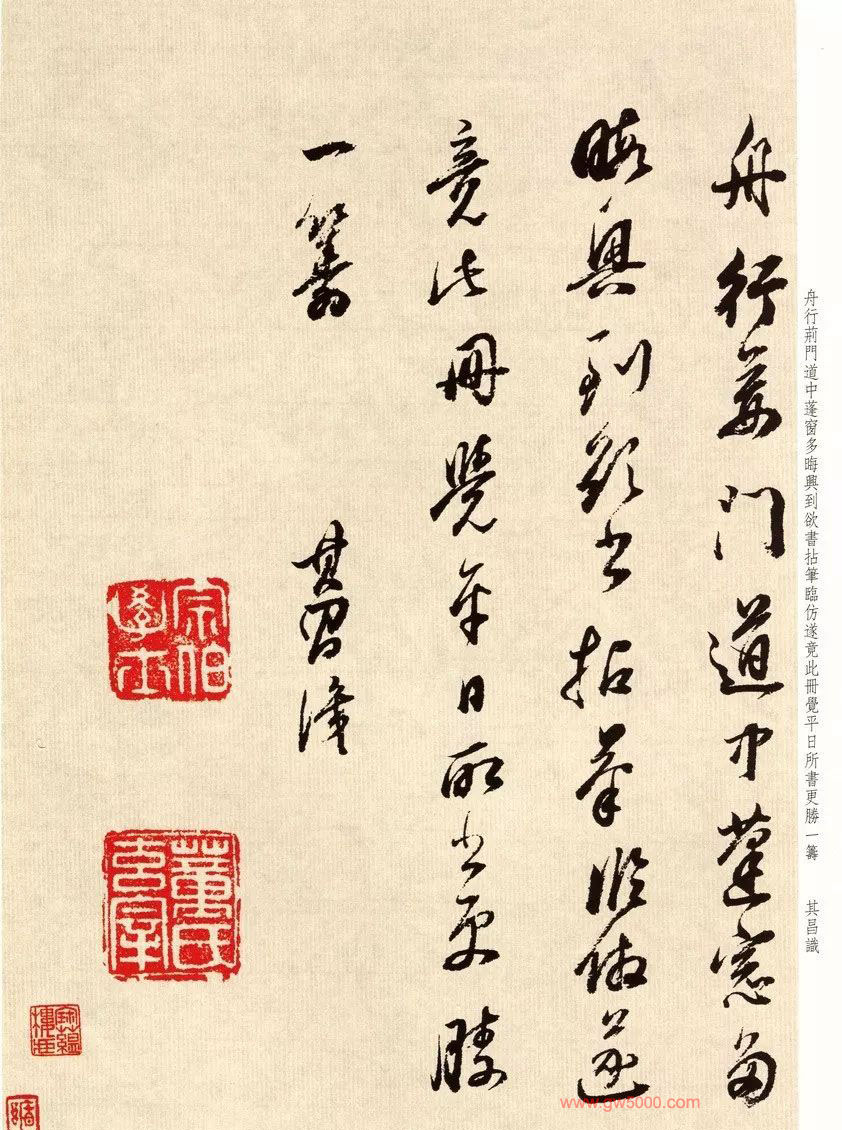 舟行荊門道中蓬窗多
晦興到欲書拈筆臨仿遂
竟此冊覺平日所書更勝
一籌
其昌識
宗伯學士
董氏昌
舟行荊門道中蓬窗多晦興到欲書拈筆臨仿遂竟此冊覺平日所書更勝一籌 其昌識
www.gw5000.com